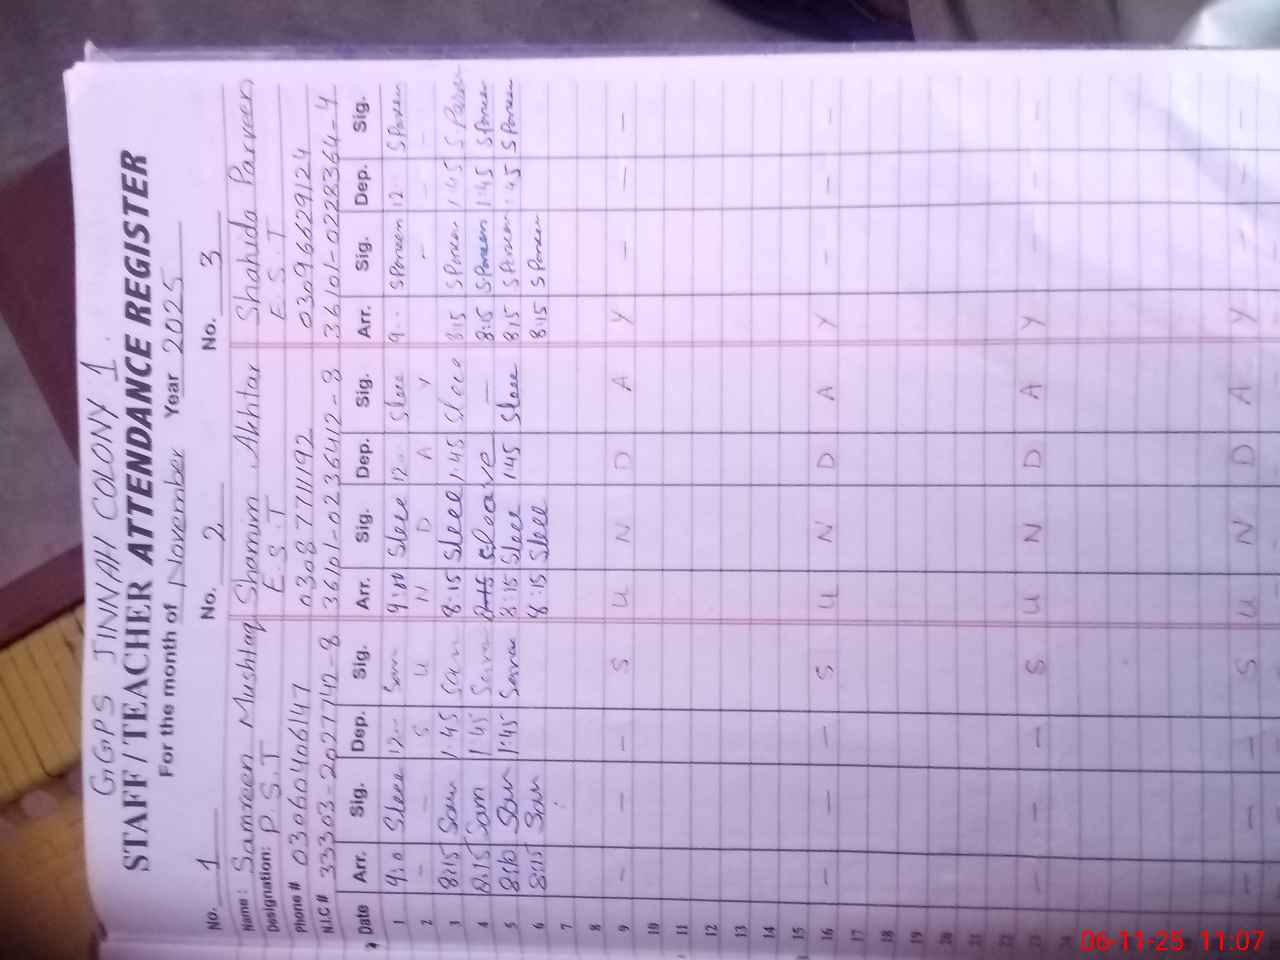 GGPS JINNAH COLONY 1.
STAFF/TEACHER ATTENDANCE REGISTER
For the month of November Year 2025
No. 1 No. 2 No. 3
Name: Samreen Mushtaq Shamim Akhtar Shahida Parveen
Designation: P.S.T E.S.T E.S.T
Phone # 03060406147 0308 7711192 03096629124
N.I.C # 33303-2027742-8 36101-0236412-8 36101-0228364-4
Date Arr. Sig. Dep. Sig. Arr. Sig. Dep. Sig. Arr. Sig. Dep. Sig.
1 9:0 12-- Sam 9:00 12.. 9.. SParveen 12 SParveen
2 - - S U N D A Y - - -
3 8:15 Sam 1:45 Sam 8:15 1:45 8:15 SParveen 1:45 S.Parveen
4 8:15 Sam 1:45 leave - 8:15 SParveen 1:45 SParveen
5 8:10 Sam 1:45 8:15 1:45 8:15 SParveen 1:45 SParveen
6 8:15 Sam 8:15 8:15 SParveen
7
8
9 - - - S U N D A Y - - -
10
11
12
13
14
15
16 - - - S U N D A Y - - -
17
18
19
20
21
22
23 - - - S U N D A Y - - -
24
- - - S U N D A Y - - -
06-11-25 11:07